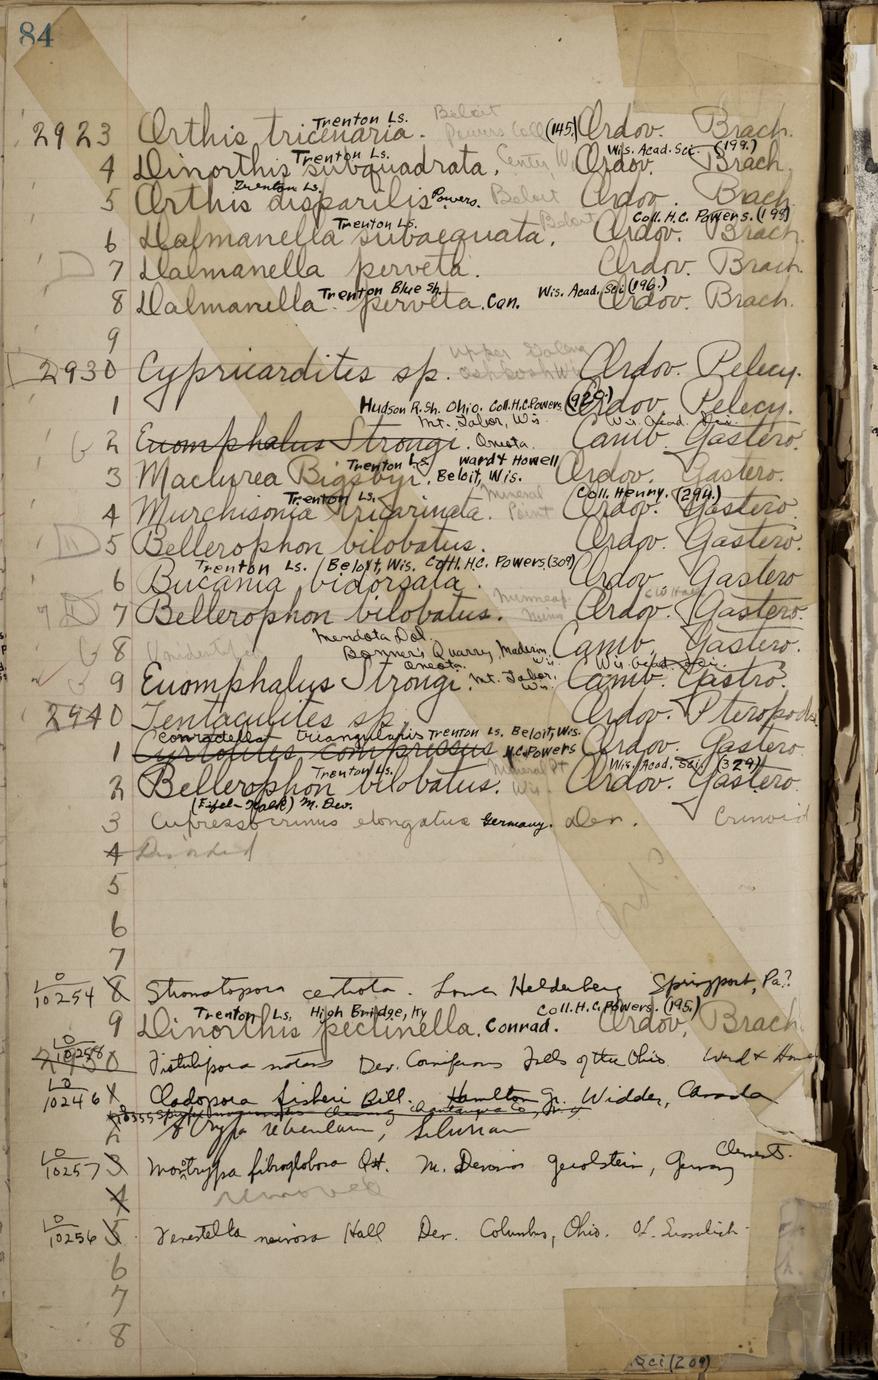 84
Trenton Ls. Beloit
2923 Orthis tricenaria. Powers Coll (145.) Ordov. Brach.
Trenton Ls. Wis. Acad. Sci. (199.)
4 Dinorthis subquadrata. Ordov. Brach.
Trenton Ls.
5 Orthis disparilis Powers. Beloit Ordov. Brach.
Trenton Ls. Beloit Coll. H.C. Powers. (199)
6 Dalmanella subaequata. Ordov. Brach.
7 Dalmanella perveta. Ordov. Brach.
Trenton Blue Sh. Wis. Acad. Sci (196.)
8 Dalmanella perveta. Con. Ordov. Brach.
9
Upper
2930 Cypricardites sp. Oshkosh Ordov. Pelecy.
1 Hudson R. Sh. Ohio. Coll. H.C. Powers (920.) Ordov Pelecy.
Mt. Tabor, Wis. Wis. Acad. Sci.
2 Euomphalus Strongi. Oneota Camb. Gastero.
Trenton Ls. Ward & Howell
3 Maclurea Bigsbyi. Beloit, Wis. Ordov. Gastero.
Trenton Ls. Mineral Point Coll. Henny. (294.)
4 Murchisonia tricarinata. Ordov. Gastero.
5 Bellerophon bilobatus. Ordov. Gastero.
Trenton Ls. (Beloit, Wis. Coll. H.C. Powers. (309)
6 Bucania bidorsata. Ordov Gastero
7 Bellerophon bilobatus. Minneap. Minn. Ordov. Gastero.
Mendota Dol.
8 Unidentified Bonner's Quarry, Madison, Wis. Camb. Gastero.
Oneota. Wis. Acad. Sci.
9 Euomphalus Strongi. Mt. Tabor, Wis. Camb. Gastro.
2940 Tentaculites sp. Ordov. Pteropoda
Conradella triangularis Trenton Ls. Beloit, Wis.
1 Cyrtolites compressus H.C. Powers Ordov. Gastero
Trenton Ls. Mineral Pt Wis. Wis. Acad. Sci. (329)
2 Bellerophon bilobatus. Ordov. Gastero.
(Eifel-Kalk) M. Dev.
3 Cupressocrinus elongatus Germany. Dev. Crinoid
4 Discarded
5
6
7
LO
10254 8 Stromatopora Lower Helderberg Springport, Pa.?
Trenton Ls. High Bridge, Ky Coll. H.C. Powers. (195.)
9 Dinorthis pectinella. Conrad. Ordov, Brach
LO
10258
2950 Fistulipora Dev. Corniferous Falls of the Ohio Ward & Howe
LO
10246 1 Cladopora fisheri Bill. Hamilton Gr. Widder, Canada
2 Atrypa reticularis, Silurian
LO
10257 3 Monotrypa fibroglobosa Qst. M. Devonian Gerolstein, Germany
4 removed
LO
10256 5 Fenestella nervosa Hall Dev. Columbus, Ohio.
6
7
8
Sci (209)